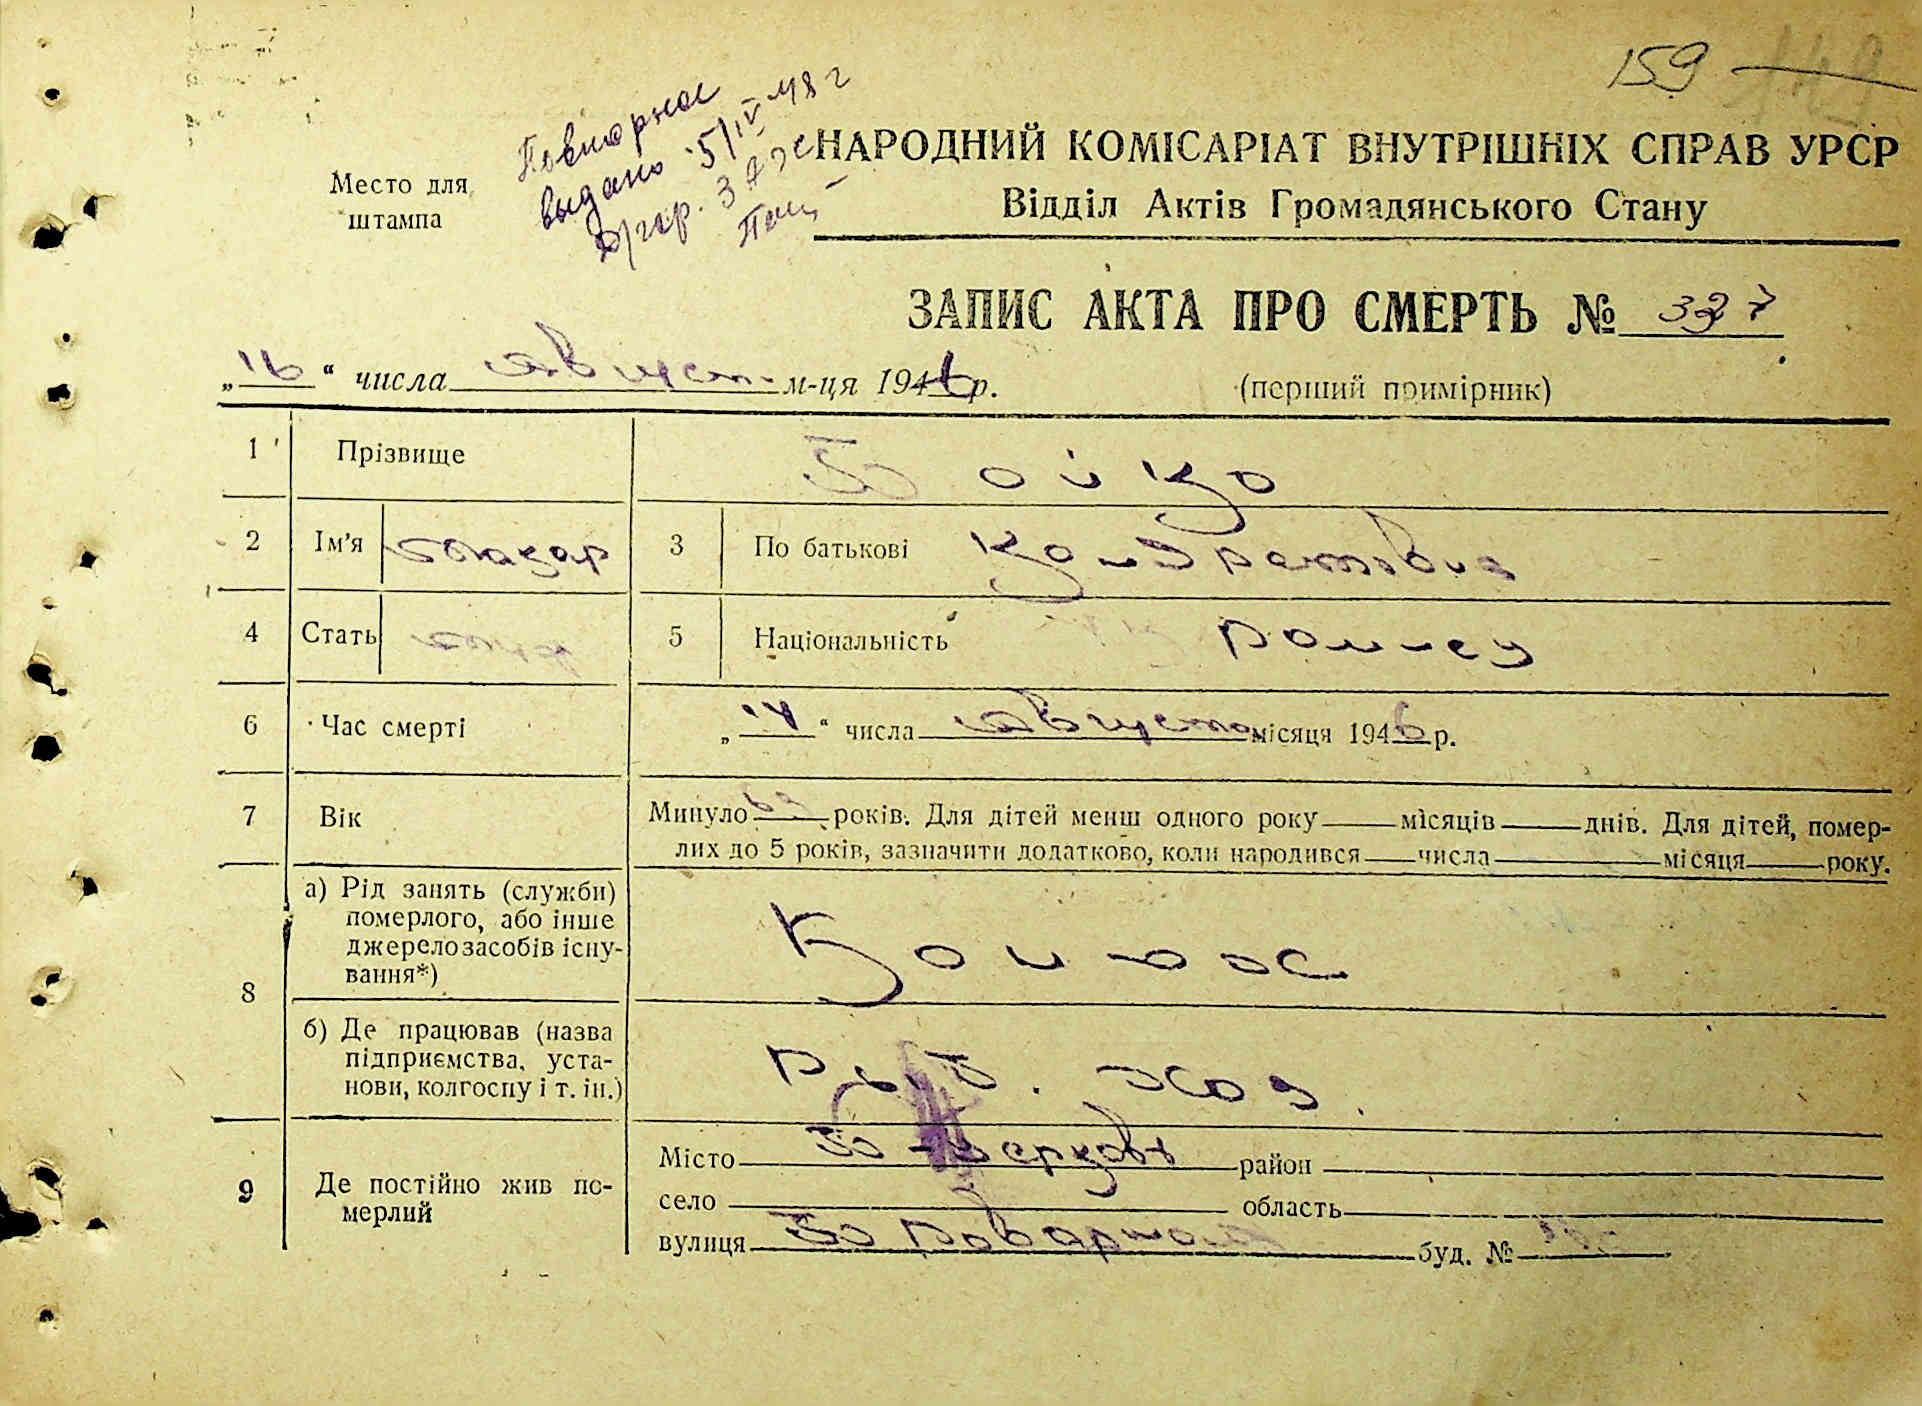 159
Место для
штампа
Повторное
выдано 5/IV 48 г
НАРОДНИЙ КОМІСАРІАТ ВНУТРІШНІХ СПРАВ УРСР
Відділ Актів Громадянського Стану
ЗАПИС АКТА ПРО СМЕРТЬ № 327
„16“ числа август м-ця 1946 р.
(перший примірник)
1 Прізвище Бойко
2 Ім'я Макар 3 По батькові Кондратович
4 Стать муж 5 Національність
6 Час смерті „14“ числа августа місяця 1946 р.
7 Вік Минуло років. Для дітей менш одного року місяців днів. Для дітей, помер-
лих до 5 років, зазначити додатково, коли народився числа місяця року.
8 а) Рід занять (служби)
померлого, або інше
джерело засобів існу-
вання*)
Конюх
б) Де працював (назва
підприємства, уста-
нови, колгоспу і т. ін.)
Рыб. хоз.
9 Де постійно жив по-
мерлий
Місто Б-Церковь район
село область
вулиця буд. №